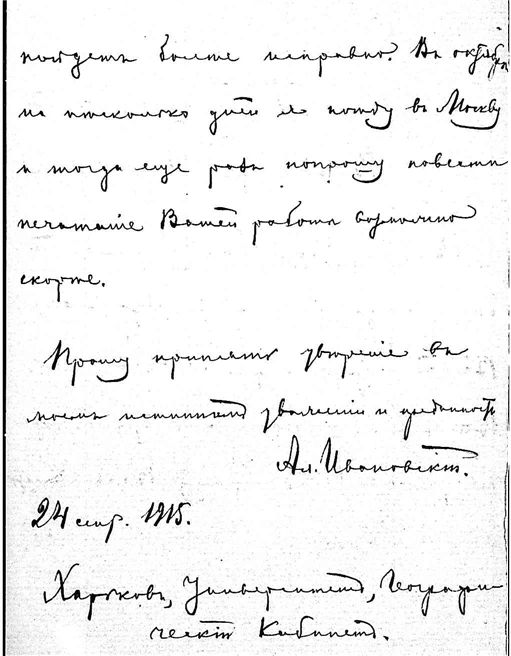 пойдетъ болѣе исправно. Въ октябрѣ
на нѣсколько дней я поѣду въ Москву
и тогда еще разъ попрошу повести
печатаніе Вашей работы возможно
скорѣе.
Прошу принять увѣреніе въ
моемъ истинномъ уваженіи и преданности
Ал. Ивановскій.
24 сент. 1915.
Харьковъ, Университетъ, Географи-
ческій Кабинетъ.